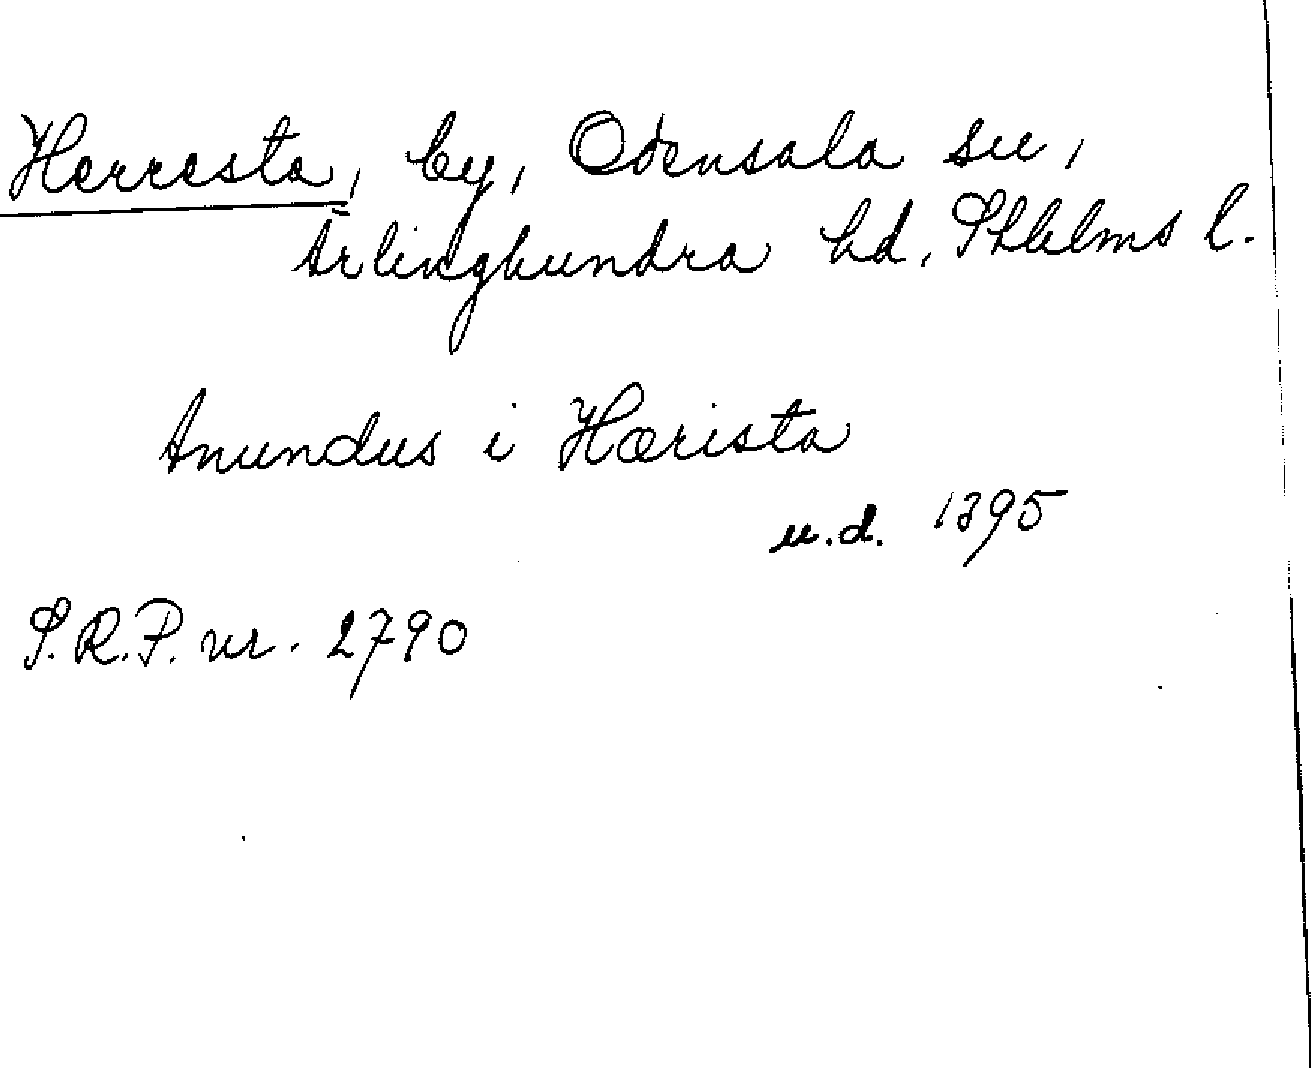 Herresta, by, Odensala sn,
Ärlinghundra hd, Sthlms l.
Anundus i Hærista
u.d. 1395
S.R.P. nr. 2790